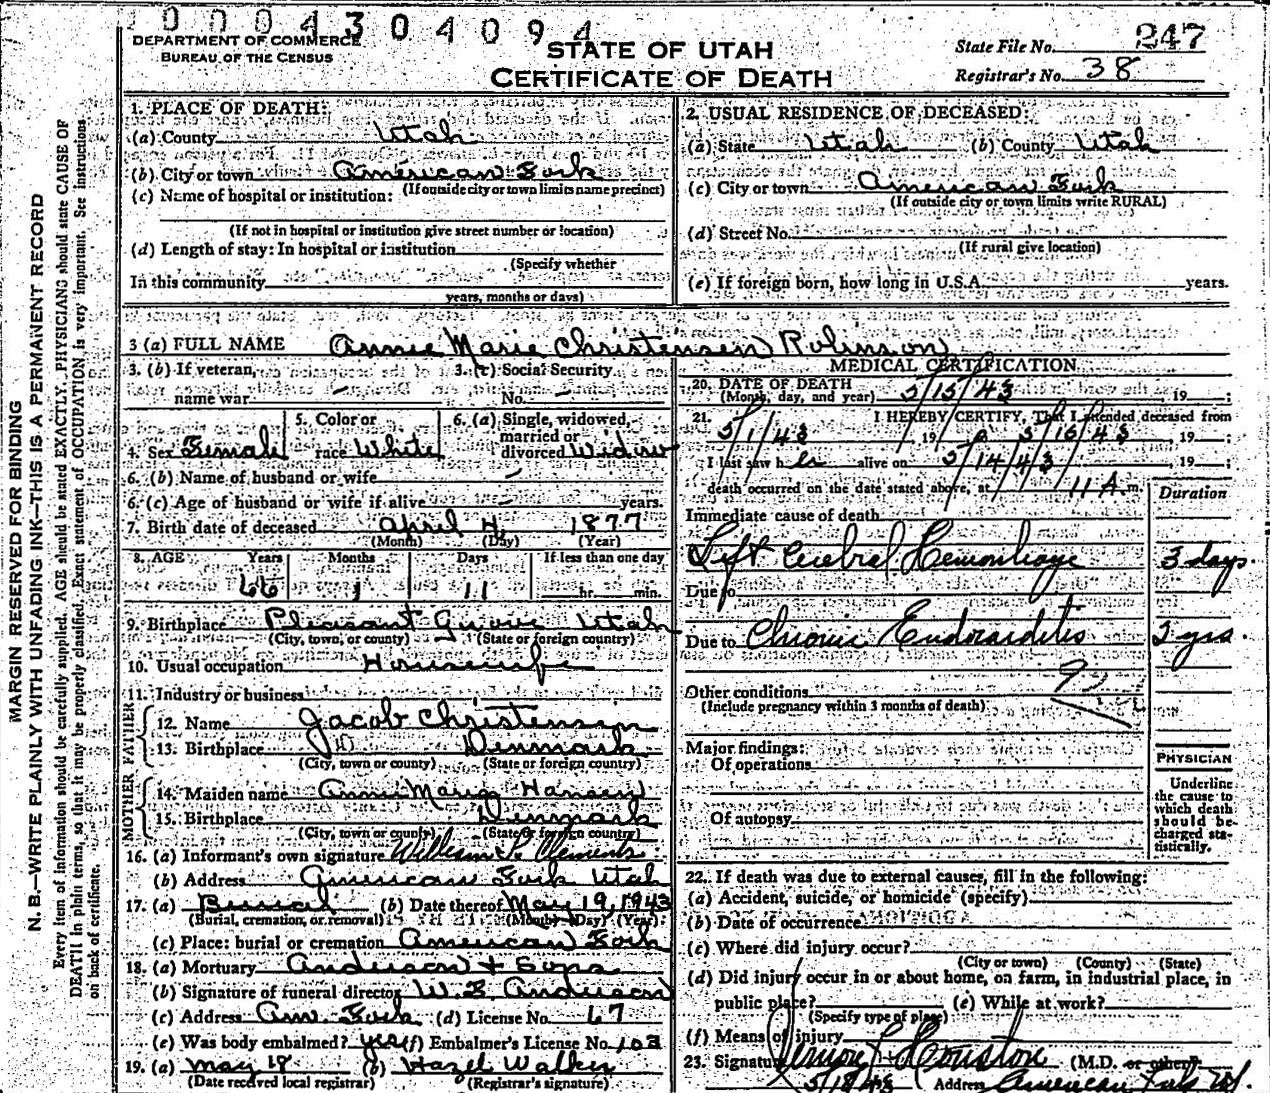 0004304094
DEPARTMENT OF COMMERCE
BUREAU OF THE CENSUS
STATE OF UTAH
CERTIFICATE OF DEATH
State File No. 247
Registrar's No. 38
MARGIN RESERVED FOR BINDING
N. B.—WRITE PLAINLY WITH UNFADING INK—THIS IS A PERMANENT RECORD
Every item of information should be carefully supplied. AGE should be stated EXACTLY. PHYSICIANS should state CAUSE OF
DEATH in plain terms, so that it may be properly classified. Exact statement of OCCUPATION is very important. See instructions
on back of certificate.
1. PLACE OF DEATH:
(a) County Utah
(b) City or town American Fork
(If outside city or town limits name precinct)
(c) Name of hospital or institution:
(If not in hospital or institution give street number or location)
(d) Length of stay: In hospital or institution
(Specify whether
In this community
years, months or days)
2. USUAL RESIDENCE OF DECEASED:
(a) State Utah (b) County Utah
(c) City or town American Fork
(If outside city or town limits write RURAL)
(d) Street No.
(If rural give location)
(e) If foreign born, how long in U.S.A. years.
3 (a) FULL NAME Annie Marie Christensen Robinson
3. (b) If veteran, 3. (c) Social Security
name war – No. –
4. Sex Female 5. Color or race White 6. (a) Single, widowed, married or divorced Widow
6. (b) Name of husband or wife –
6. (c) Age of husband or wife if alive – years.
7. Birth date of deceased April 4 1877
(Month) (Day) (Year)
8. AGE Years Months Days If less than one day
66 1 11 hr. min.
9. Birthplace Pleasant Grove Utah
(City, town, or county) (State or foreign country)
10. Usual occupation Housewife
11. Industry or business
FATHER
12. Name Jacob Christensen
13. Birthplace Denmark
(City, town or county) (State or foreign country)
MOTHER
14. Maiden name Annie Maria Hansen
15. Birthplace Denmark
(City, town or county) (State or foreign country)
16. (a) Informant's own signature William S. Clements
(b) Address American Fork Utah
17. (a) Burial (b) Date thereof May 19, 1943
(Burial, cremation, or removal) (Month) (Day) (Year)
(c) Place: burial or cremation American Fork
18. (a) Mortuary Anderson + Sons
(b) Signature of funeral director W. E. Anderson
(c) Address Am. Fork (d) License No. 67
(e) Was body embalmed? yes (f) Embalmer's License No. 103
19. (a) May 18 (b) Hazel Walker
(Date received local registrar) (Registrar's signature)
MEDICAL CERTIFICATION
20. DATE OF DEATH
(Month, day, and year) 5/15/43, 19 ;
21. I HEREBY CERTIFY, That I attended deceased from
5/1/43, 19 5/15/43, 19 ;
I last saw her alive on 5/14/43, 19 ;
death occurred on the date stated above, at 11 A. m.
Immediate cause of death Duration
Left Cerebral Hemorrhage 3 days.
Due to
Due to Chronic Endocarditis 2 yrs.
Other conditions
(Include pregnancy within 3 months of death)
Major findings:
Of operations
Of autopsy
PHYSICIAN
Underline
the cause to
which death
should be
charged sta-
tistically.
22. If death was due to external causes, fill in the following:
(a) Accident, suicide, or homicide (specify)
(b) Date of occurrence
(c) Where did injury occur?
(City or town) (County) (State)
(d) Did injury occur in or about home, on farm, in industrial place, in
public place? (e) While at work?
(Specify type of place)
(f) Means of injury
23. Signature Vernon F. Houston (M.D. or other)
5/18/43 Address American Fork Ut.